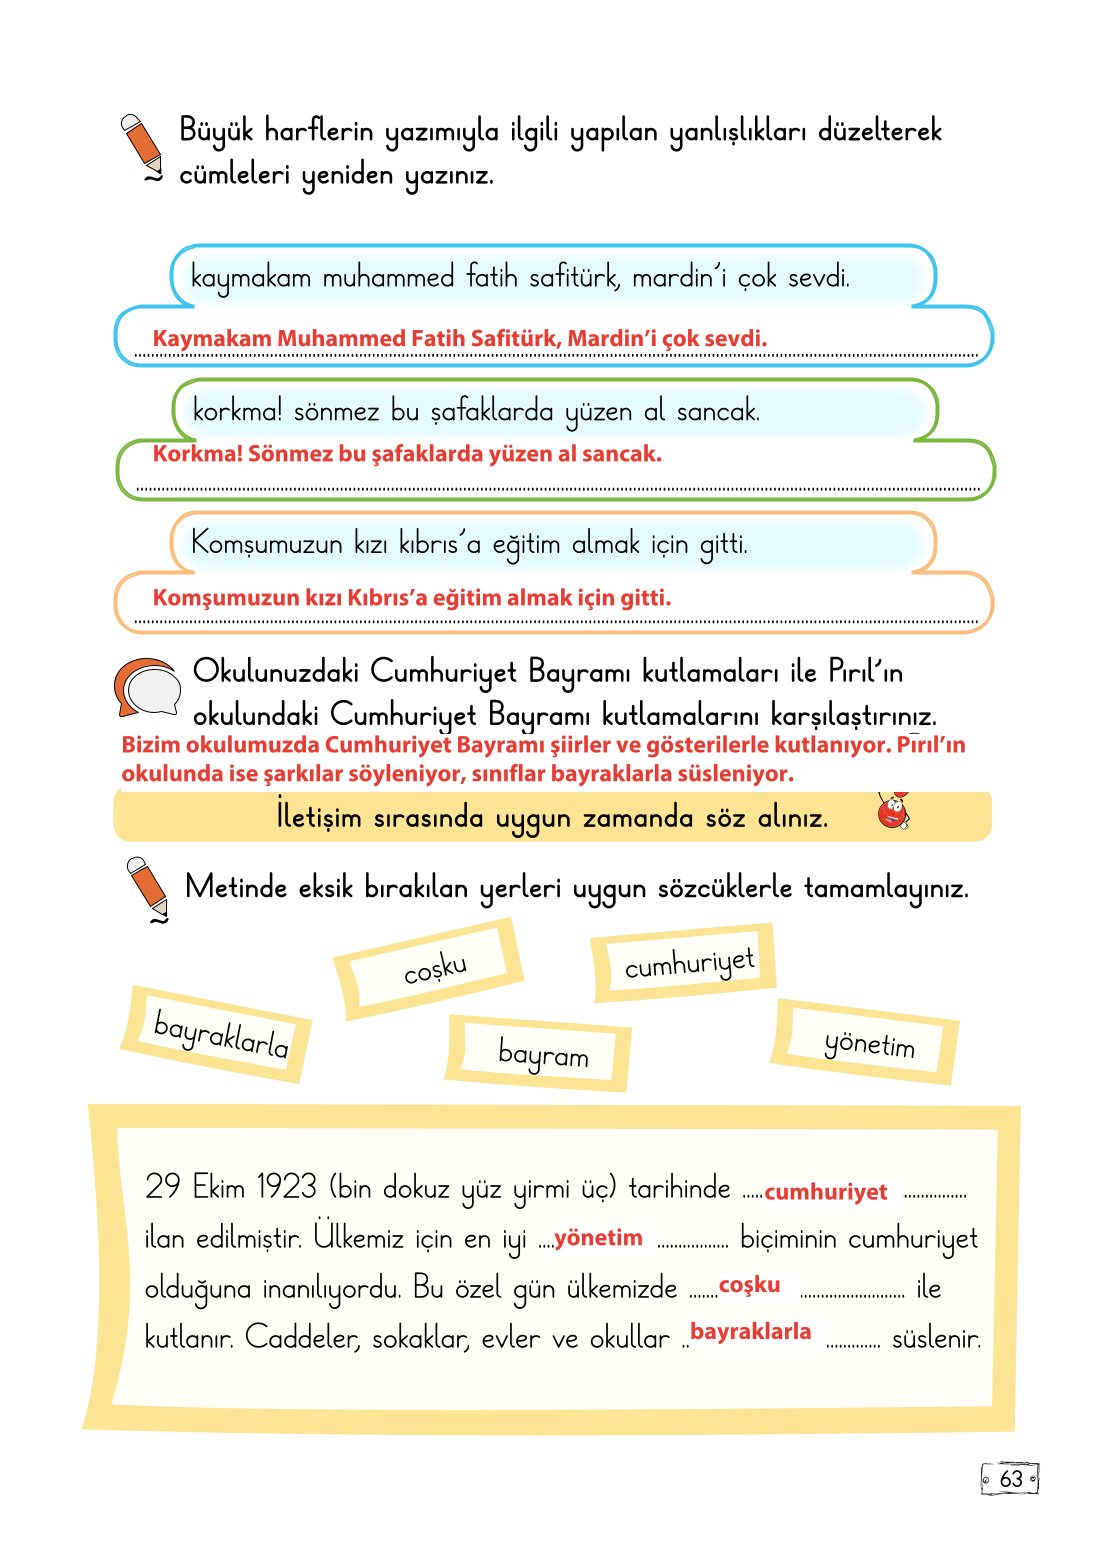 Büyük harflerin yazımıyla ilgili yapılan yanlışlıkları düzelterek
cümleleri yeniden yazınız.
kaymakam muhammed fatih safitürk, mardin'i çok sevdi.
Kaymakam Muhammed Fatih Safitürk, Mardin'i çok sevdi.
korkma! sönmez bu şafaklarda yüzen al sancak.
Korkma! Sönmez bu şafaklarda yüzen al sancak.
Komşumuzun kızı kıbrıs'a eğitim almak için gitti.
Komşumuzun kızı Kıbrıs'a eğitim almak için gitti.
Okulunuzdaki Cumhuriyet Bayramı kutlamaları ile Pırıl'ın
okulundaki Cumhuriyet Bayramı kutlamalarını karşılaştırınız.
Bizim okulumuzda Cumhuriyet Bayramı şiirler ve gösterilerle kutlanıyor. Pırıl'ın
okulunda ise şarkılar söyleniyor, sınıflar bayraklarla süsleniyor.
İletişim sırasında uygun zamanda söz alınız.
Metinde eksik bırakılan yerleri uygun sözcüklerle tamamlayınız.
coşku
cumhuriyet
bayraklarla
bayram
yönetim
29 Ekim 1923 (bin dokuz yüz yirmi üç) tarihinde .....cumhuriyet ...............
ilan edilmiştir. Ülkemiz için en iyi ....yönetim ................. biçiminin cumhuriyet
olduğuna inanılıyordu. Bu özel gün ülkemizde .......coşku ......................... ile
kutlanır. Caddeler, sokaklar, evler ve okullar ..bayraklarla ............. süslenir.
63